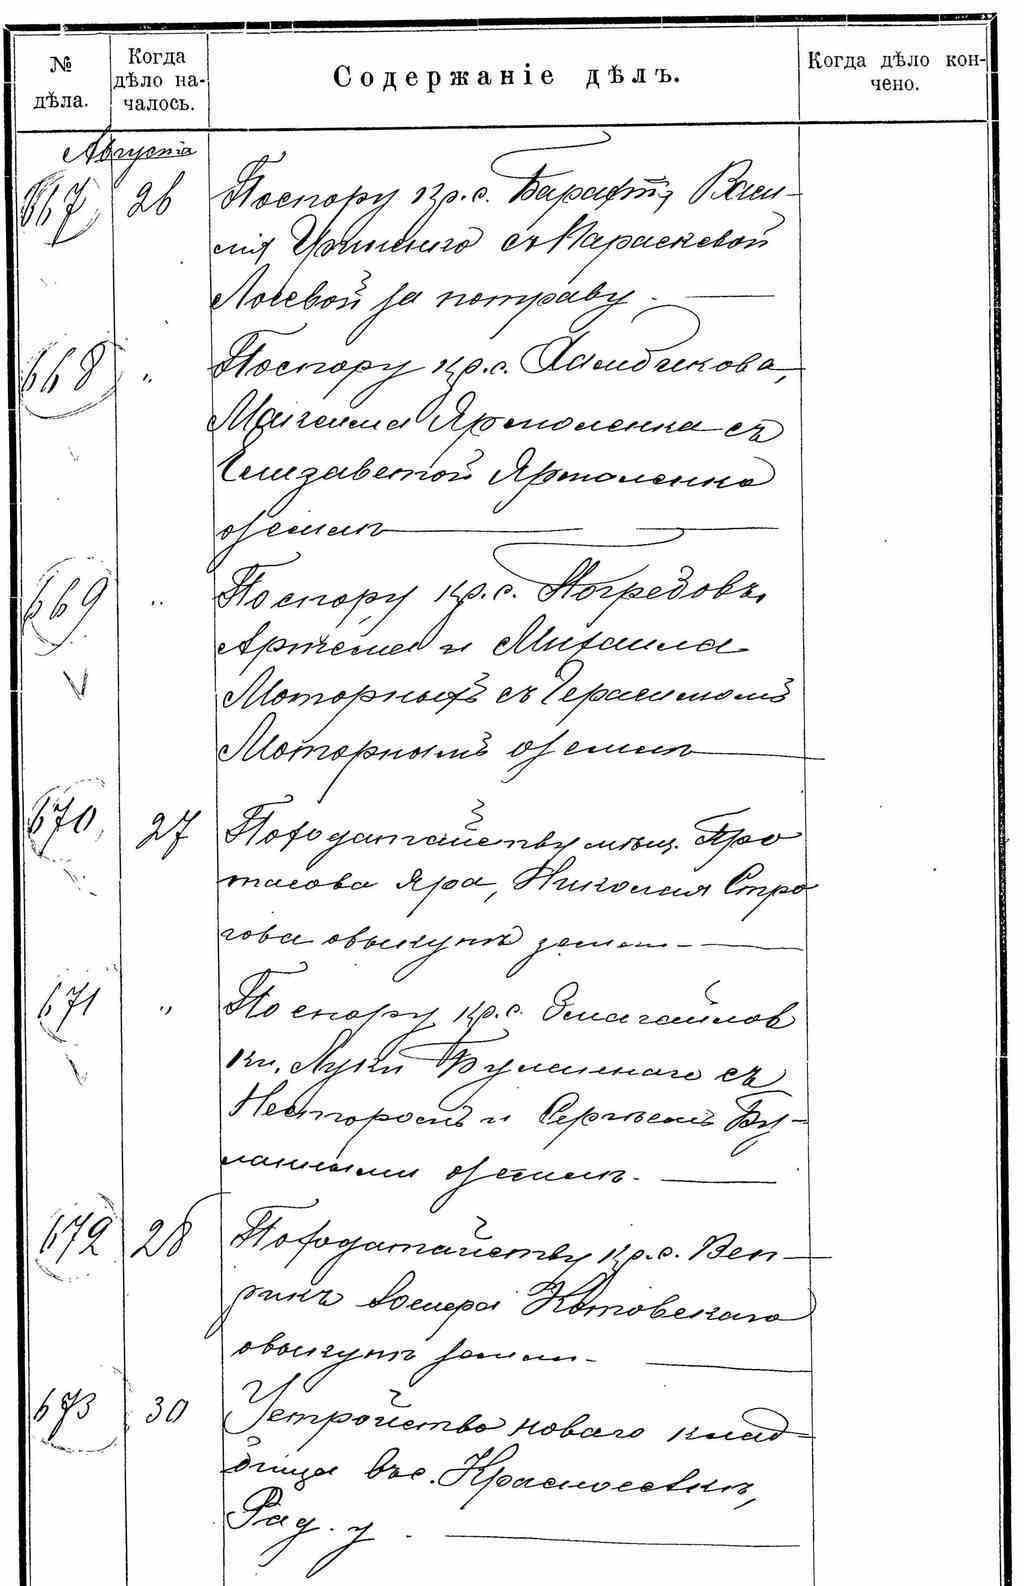 № дѣла.
Когда дѣло на-
чалось.
Содержаніе дѣлъ.
Когда дѣло кон-
чено.
Августа
667 26 По спору кр. с. Васи-
лія съ Параскевой
Лосевой за потраву.
668 " По спору кр. с.
Максима Ярмоленка съ
Елизаветой Ярмоленко
о земл
669 " По спору кр. с. Погребовъ,
Артема и Михаила
Моторныхъ съ Герасимомъ
Моторнымъ о земл
670 27 По ходатайству мѣщ. Про
тасова Яра, Николая Стро
гова о выкупѣ земли
671 " По спору кр. с.
ки, Луки Буланнаго съ
Несторомъ и Сергѣемъ Бу-
ланными о земл
672 28 По ходатайству кр. с. Веп-
рикъ Котовскаго
о выкупѣ земли
673 30 Устройство новаго клад-
бища въ с. Красносѣлкѣ,
Рад. у.